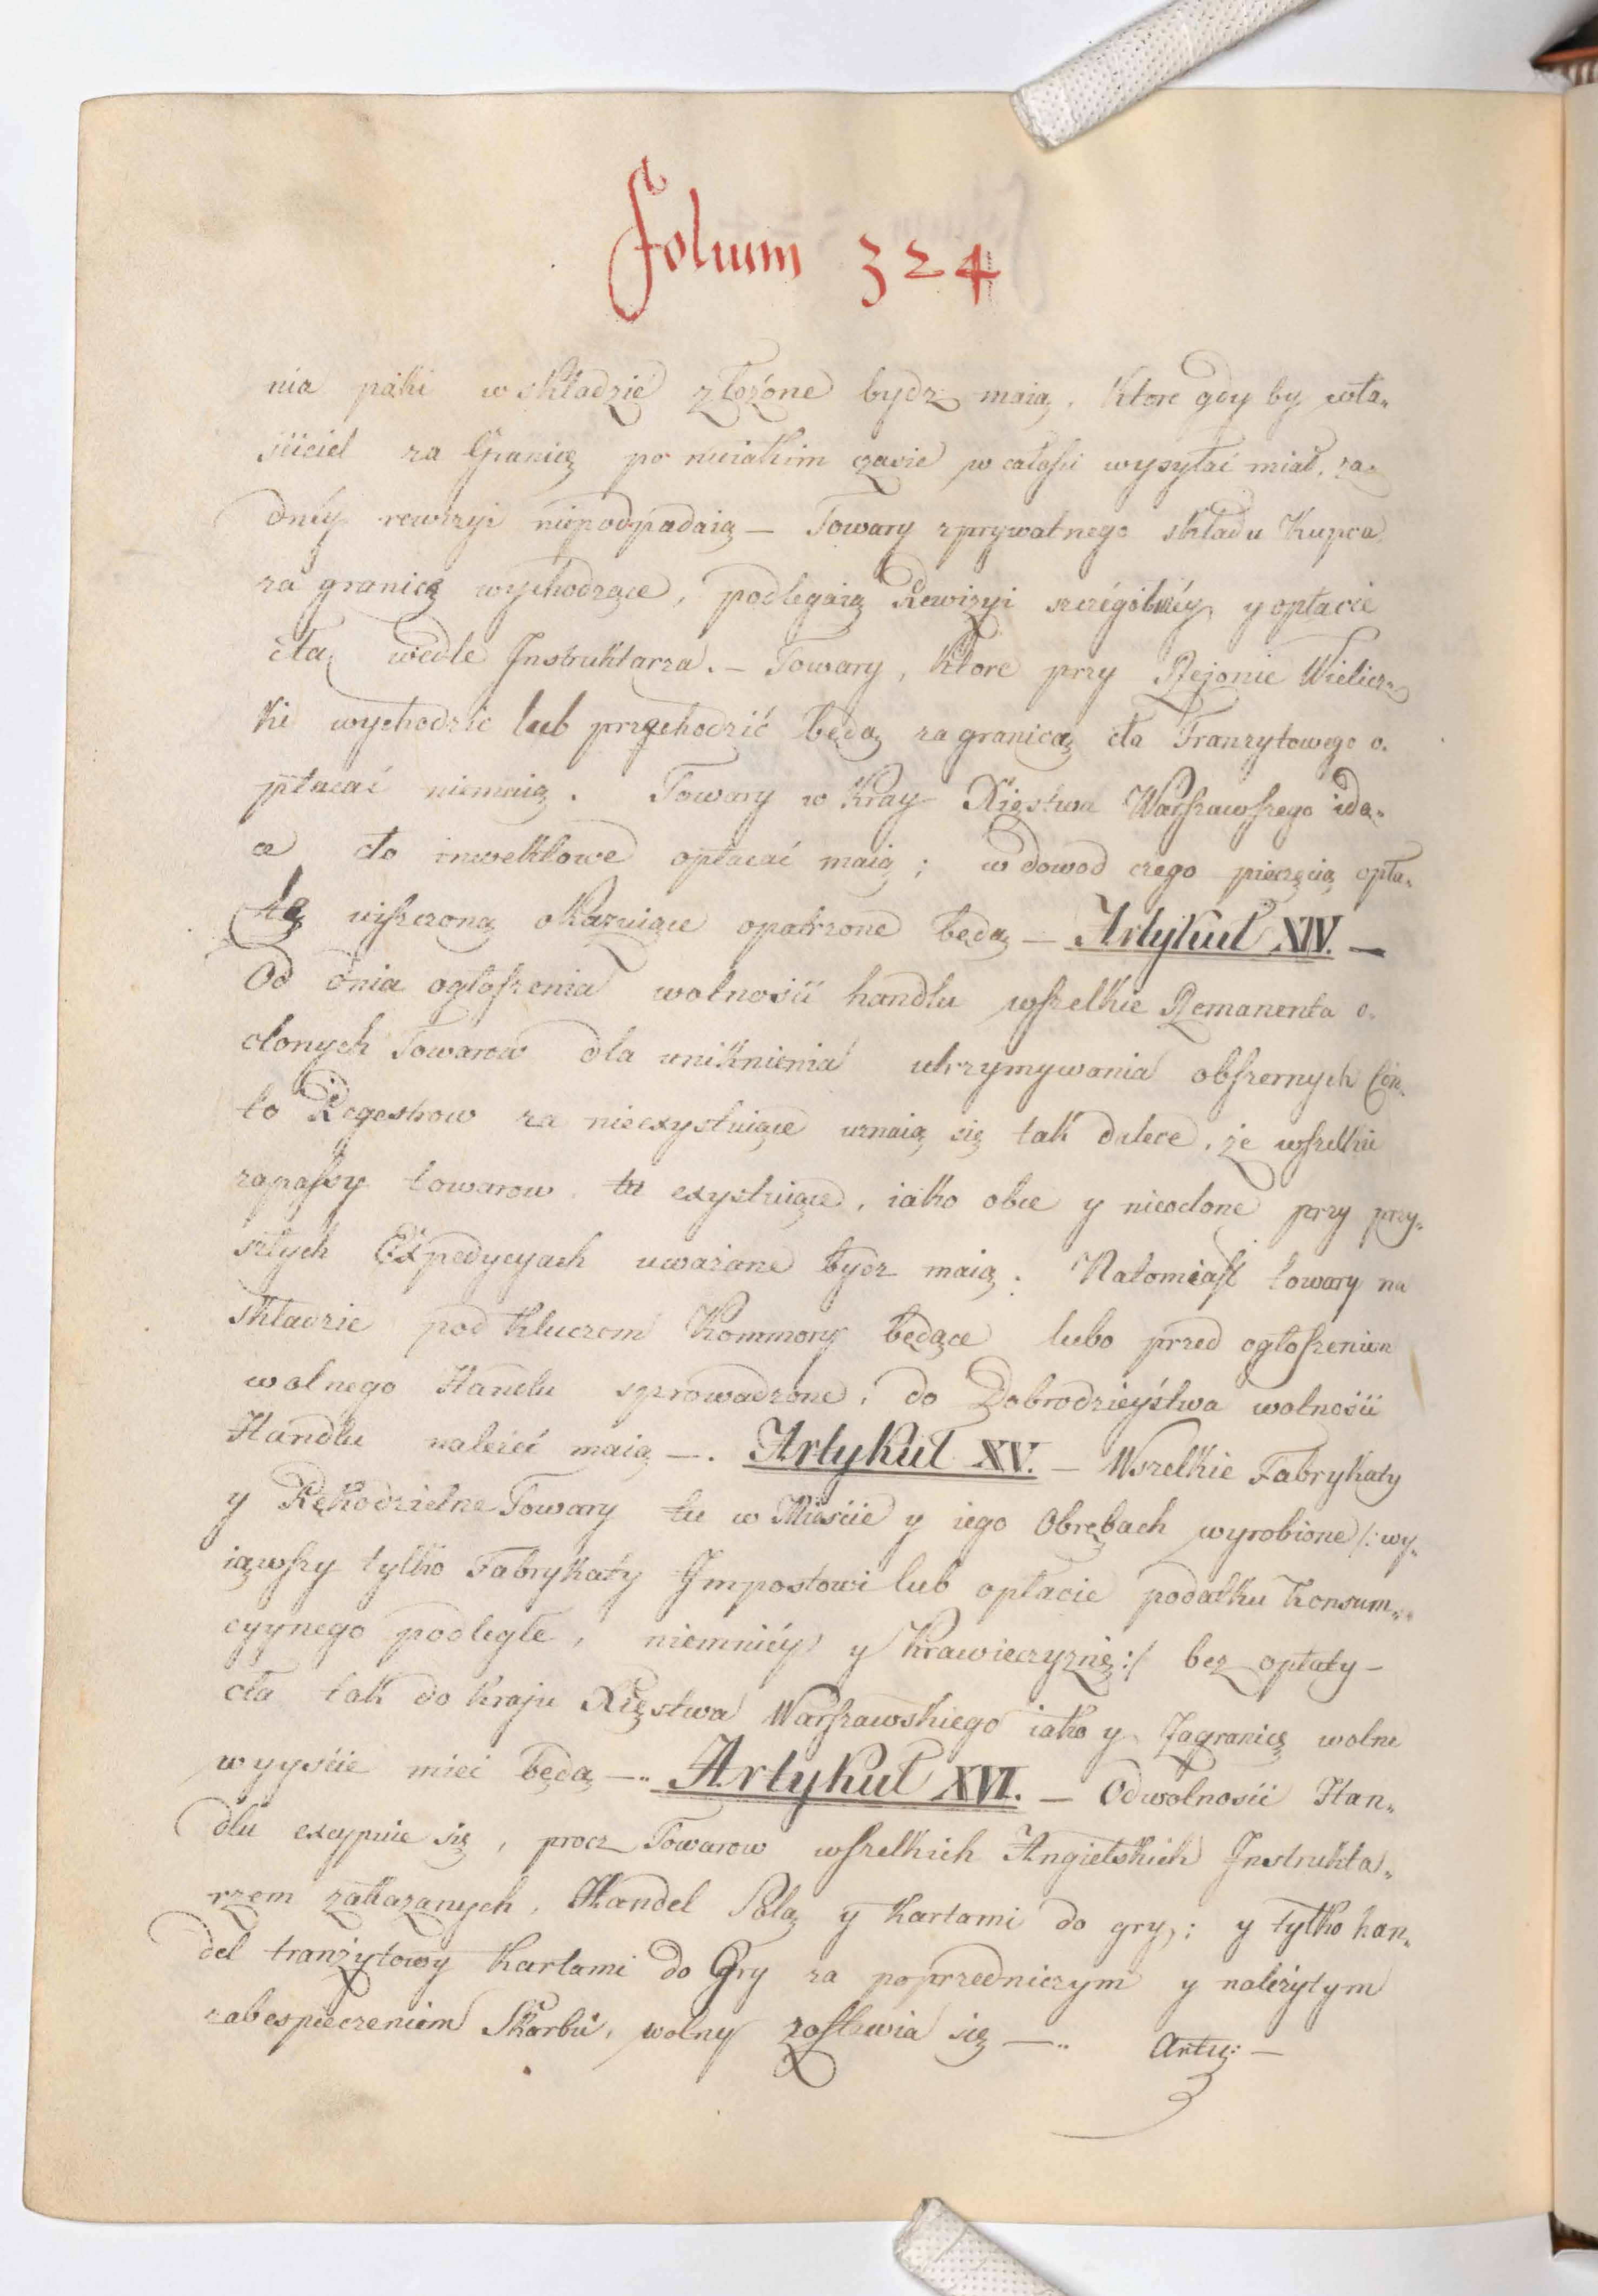 Folium 324
nia paki w składzie złożone bydz maią, które gdy by wła„
ściciel za Granicę po nieiakim czasie w całości wysyłać miał, ża„
dnéy rewizyi niepodpadaią — Towary z prywatnego składu Kupca
za granicę wychodzące, podlegaią Rewizyi szczególnéy y opłacie
cła wedle Instruktarza. — Towary, które przy Rejonie Wielicz„
ki wychodzić lub przechodzić będą za granicą cła Tranzytowego o„
płacać niemaią. Towary w Kray Xięstwa Warszawskiego idą„
ce cło inwektowe opłacać maią; w dowod czego pieczęcią opła„
tę uiszczoną okazuiące opatrzone będą — Artykuł XIV. —
Od dnia ogłoszenia wolności handlu wszelkie Remanenta o„
clonych Towarow dla uniknienia utrzymywania obszernych Con„
to Regestrow za nieexystuiące uznaią się tak dalece, że wszelkie
zapassy towarow tu exystuiące, iako obce y nieoclone przy przy„
szłych Expedycyach uważane bydz maią. Natomiast towary na
składzie pod kluczem Kommory będące lubo przed ogłoszeniem
wolnego Handlu sprowadzone, do Dobrodzieystwa wolności
Handlu należeć maią —. Artykuł XV. — Wszelkie Fabrykaty
y Rękodzielne Towary tu w Mieście y iego Obrębach wyrobione /: wy„
iąwszy tylko Fabrykaty Impostowi lub opłacie podatku Konsum„
cyynego podległe, niemniéy y Krawieczyznę :/ bez opłaty —
cła tak do Kraju Xięstwa Warszawskiego iako y Zagranicę wolne
wyyście mieć będą —„ Artykuł XVI. — Od wolności Han„
dlu excypuie się, procz Towarow wszelkich Angielskich Instrukta„
rzem zakazanych, Handel Solą y Kartami do gry; y tylko han„
del tranzytowy Kartami do Gry za poprzedniczym y należytym
zabespieczeniem Skarbu, wolny zostawia się —„ Arty: —